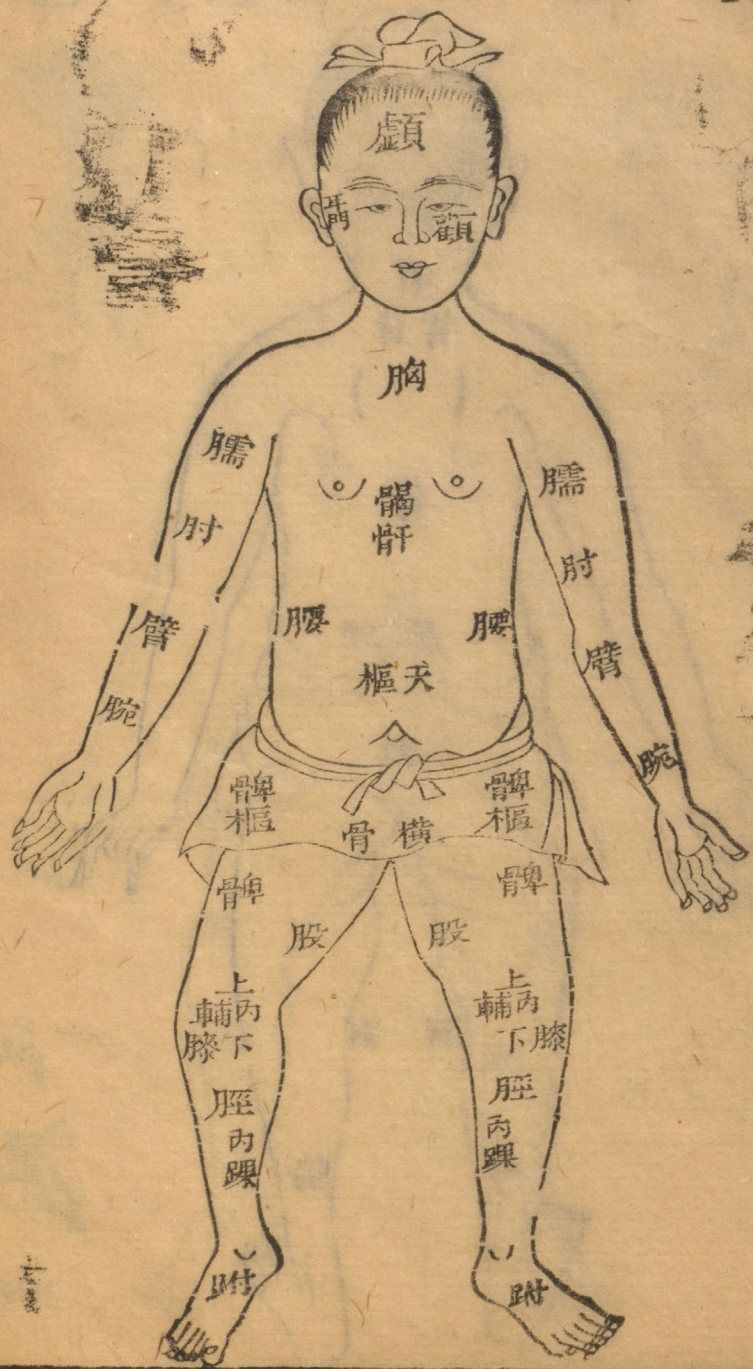 顱
耳門
顴
胸
臑
臑
𩩲骭
肘
肘
腰
腰
臂
臂
天樞
腕
腕
髀樞
髀樞
橫骨
髀
髀
股
股
上
內輔
下
膝
上
內輔
下
膝
脛
脛
內踝
內踝
跗
跗